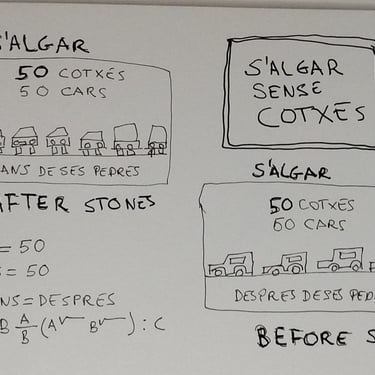 S'ALGAR
50 COTXES
50 CARS
ANS DE SES PEDRES
AFTER STONES
= 50
S = 50
NS = DESPRES
B A/B (A B) : C
S'ALGAR
SENSE
COTXES
S'ALGAR
50 COTXES
50 CARS
DESPRES DE SES PED
BEFORE S